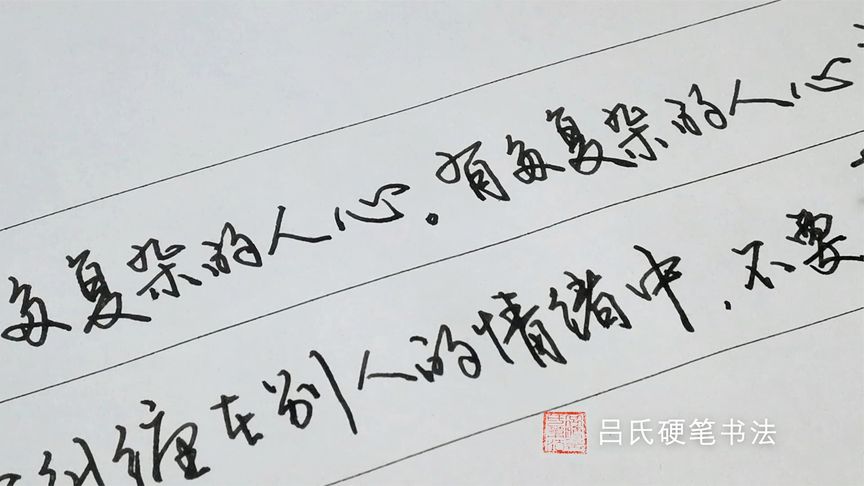 多复杂的人心。有多复杂的人心
纠缠在别人的情绪中，不要
吕氏硬笔书法